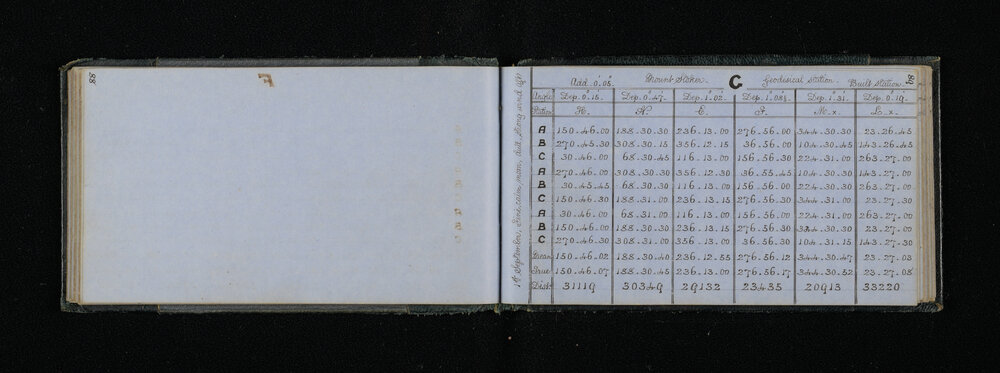 88
F
89
1st September, fine, calm, warm, dull, strong wind after
Add. 0'.05" Mount Staker. G Geodesical Station. Built station.
Angle Dep. 0.15. Dep. 0.47. Dep. 1.02. Dep. 1.08½. Dep. 1.31. Dep. 0.19.
Station H. N. E. F. M.x. L.x.
A 150.46.00 188.30.30 236.13.00 276.56.00 344.30.30 23.26.45
B 270.45.30 308.30.15 356.12.15 36.56.00 104.30.45 143.26.45
C 30.46.00 68.30.45 116.13.00 156.56.30 224.31.00 263.27.00
A 270.46.00 308.30.30 356.12.30 36.55.45 104.30.30 143.27.00
B 30.45.45 68.30.30 116.13.00 156.56.00 224.30.30 263.27.00
C 150.46.30 188.31.00 236.13.15 276.56.30 344.31.00 23.27.30
A 30.46.00 68.31.00 116.13.00 156.56.00 224.31.00 263.27.00
B 150.46.00 188.30.30 236.13.15 276.56.15 344.30.30 23.27.00
C 270.46.30 308.31.00 356.13.00 36.56.30 104.31.15 143.27.30
Mean 150.46.02 188.30.40 236.12.55 276.56.12 344.30.47 23.27.03
True 150.46.07 188.30.45 236.13.00 276.56.17 344.30.52 23.27.08
Dist. 31119 30349 29132 23435 20913 33220